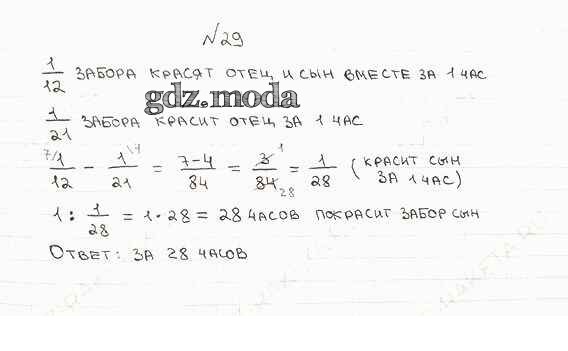 №29
1/12 ЗАБОРА КРАСЯТ ОТЕЦ И СЫН ВМЕСТЕ ЗА 1 ЧАС
gdz.moda
1/21 ЗАБОРА КРАСИТ ОТЕЦ ЗА 1 ЧАС
7/ 1/12 - 1/21 \4 = 7-4/84 = 3/84 1 28 = 1/28 (КРАСИТ СЫН ЗА 1 ЧАС)
1 : 1/28 = 1·28 = 28 ЧАСОВ ПОКРАСИТ ЗАБОР СЫН
ОТВЕТ: ЗА 28 ЧАСОВ